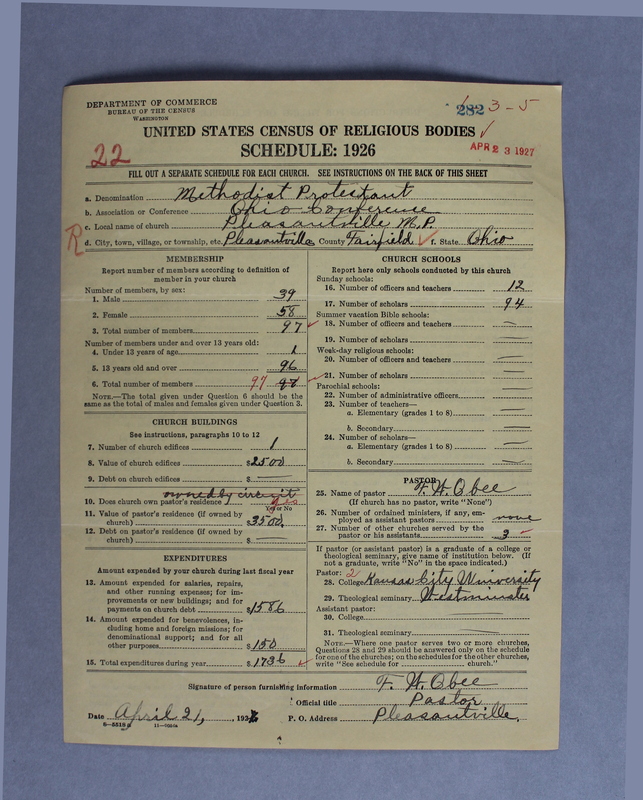 DEPARTMENT OF COMMERCE
BUREAU OF THE CENSUS
WASHINGTON
282 3-5
UNITED STATES CENSUS OF RELIGIOUS BODIES
22
SCHEDULE: 1926
APR 23 1927
FILL OUT A SEPARATE SCHEDULE FOR EACH CHURCH. SEE INSTRUCTIONS ON THE BACK OF THIS SHEET
a. Denomination Methodist Protestant
b. Association or Conference Ohio Conference
c. Local name of church Pleasantville M.P.
R
d. City, town, village, or township, etc. Pleasantville County Fairfield f. State Ohio
MEMBERSHIP
Report number of members according to definition of
member in your church
Number of members, by sex:
1. Male 39
2. Female 58
3. Total number of members 97
Number of members under and over 13 years old:
4. Under 13 years of age 1
5. 13 years old and over 96
6. Total number of members 97
NOTE.—The total given under Question 6 should be the
same as the total of males and females given under Question 3.
CHURCH BUILDINGS
See instructions, paragraphs 10 to 12
7. Number of church edifices 1
8. Value of church edifices $2500
9. Debt on church edifices $ —
owned by circuit
10. Does church own pastor's residence? yes
Yes or No
11. Value of pastor's residence (if owned by
church) $3500.
12. Debt on pastor's residence (if owned by
church) $ —
EXPENDITURES
Amount expended by your church during last fiscal year
13. Amount expended for salaries, repairs,
and other running expenses; for im-
provements or new buildings; and for
payments on church debt $1586
14. Amount expended for benevolences, in-
cluding home and foreign missions; for
denominational support; and for all
other purposes $150
15. Total expenditures during year $1736
CHURCH SCHOOLS
Report here only schools conducted by this church
Sunday schools:
16. Number of officers and teachers 12
17. Number of scholars 94
Summer vacation Bible schools:
18. Number of officers and teachers —
19. Number of scholars —
Week-day religious schools:
20. Number of officers and teachers —
21. Number of scholars —
Parochial schools:
22. Number of administrative officers —
23. Number of teachers—
a. Elementary (grades 1 to 8) —
b. Secondary —
24. Number of scholars—
a. Elementary (grades 1 to 8) —
b. Secondary —
PASTOR
25. Name of pastor F. W. Obee
(If church has no pastor, write "None")
26. Number of ordained ministers, if any, em-
ployed as assistant pastors none
27. Number of other churches served by the
pastor or his assistants 3
If pastor (or assistant pastor) is a graduate of a college or
theological seminary, give name of institution below. (If
not a graduate, write "No" in the space indicated.)
Pastor: 2
28. College Kansas City University
29. Theological seminary Westminster
Assistant pastor:
30. College
31. Theological seminary
NOTE.—Where one pastor serves two or more churches,
Questions 28 and 29 should be answered only on the schedule
for one of the churches; on the schedules for the other churches,
write "See schedule for church."
Signature of person furnishing information F. W. Obee
Official title Pastor
Date April 21, 192 P. O. Address Pleasantville,